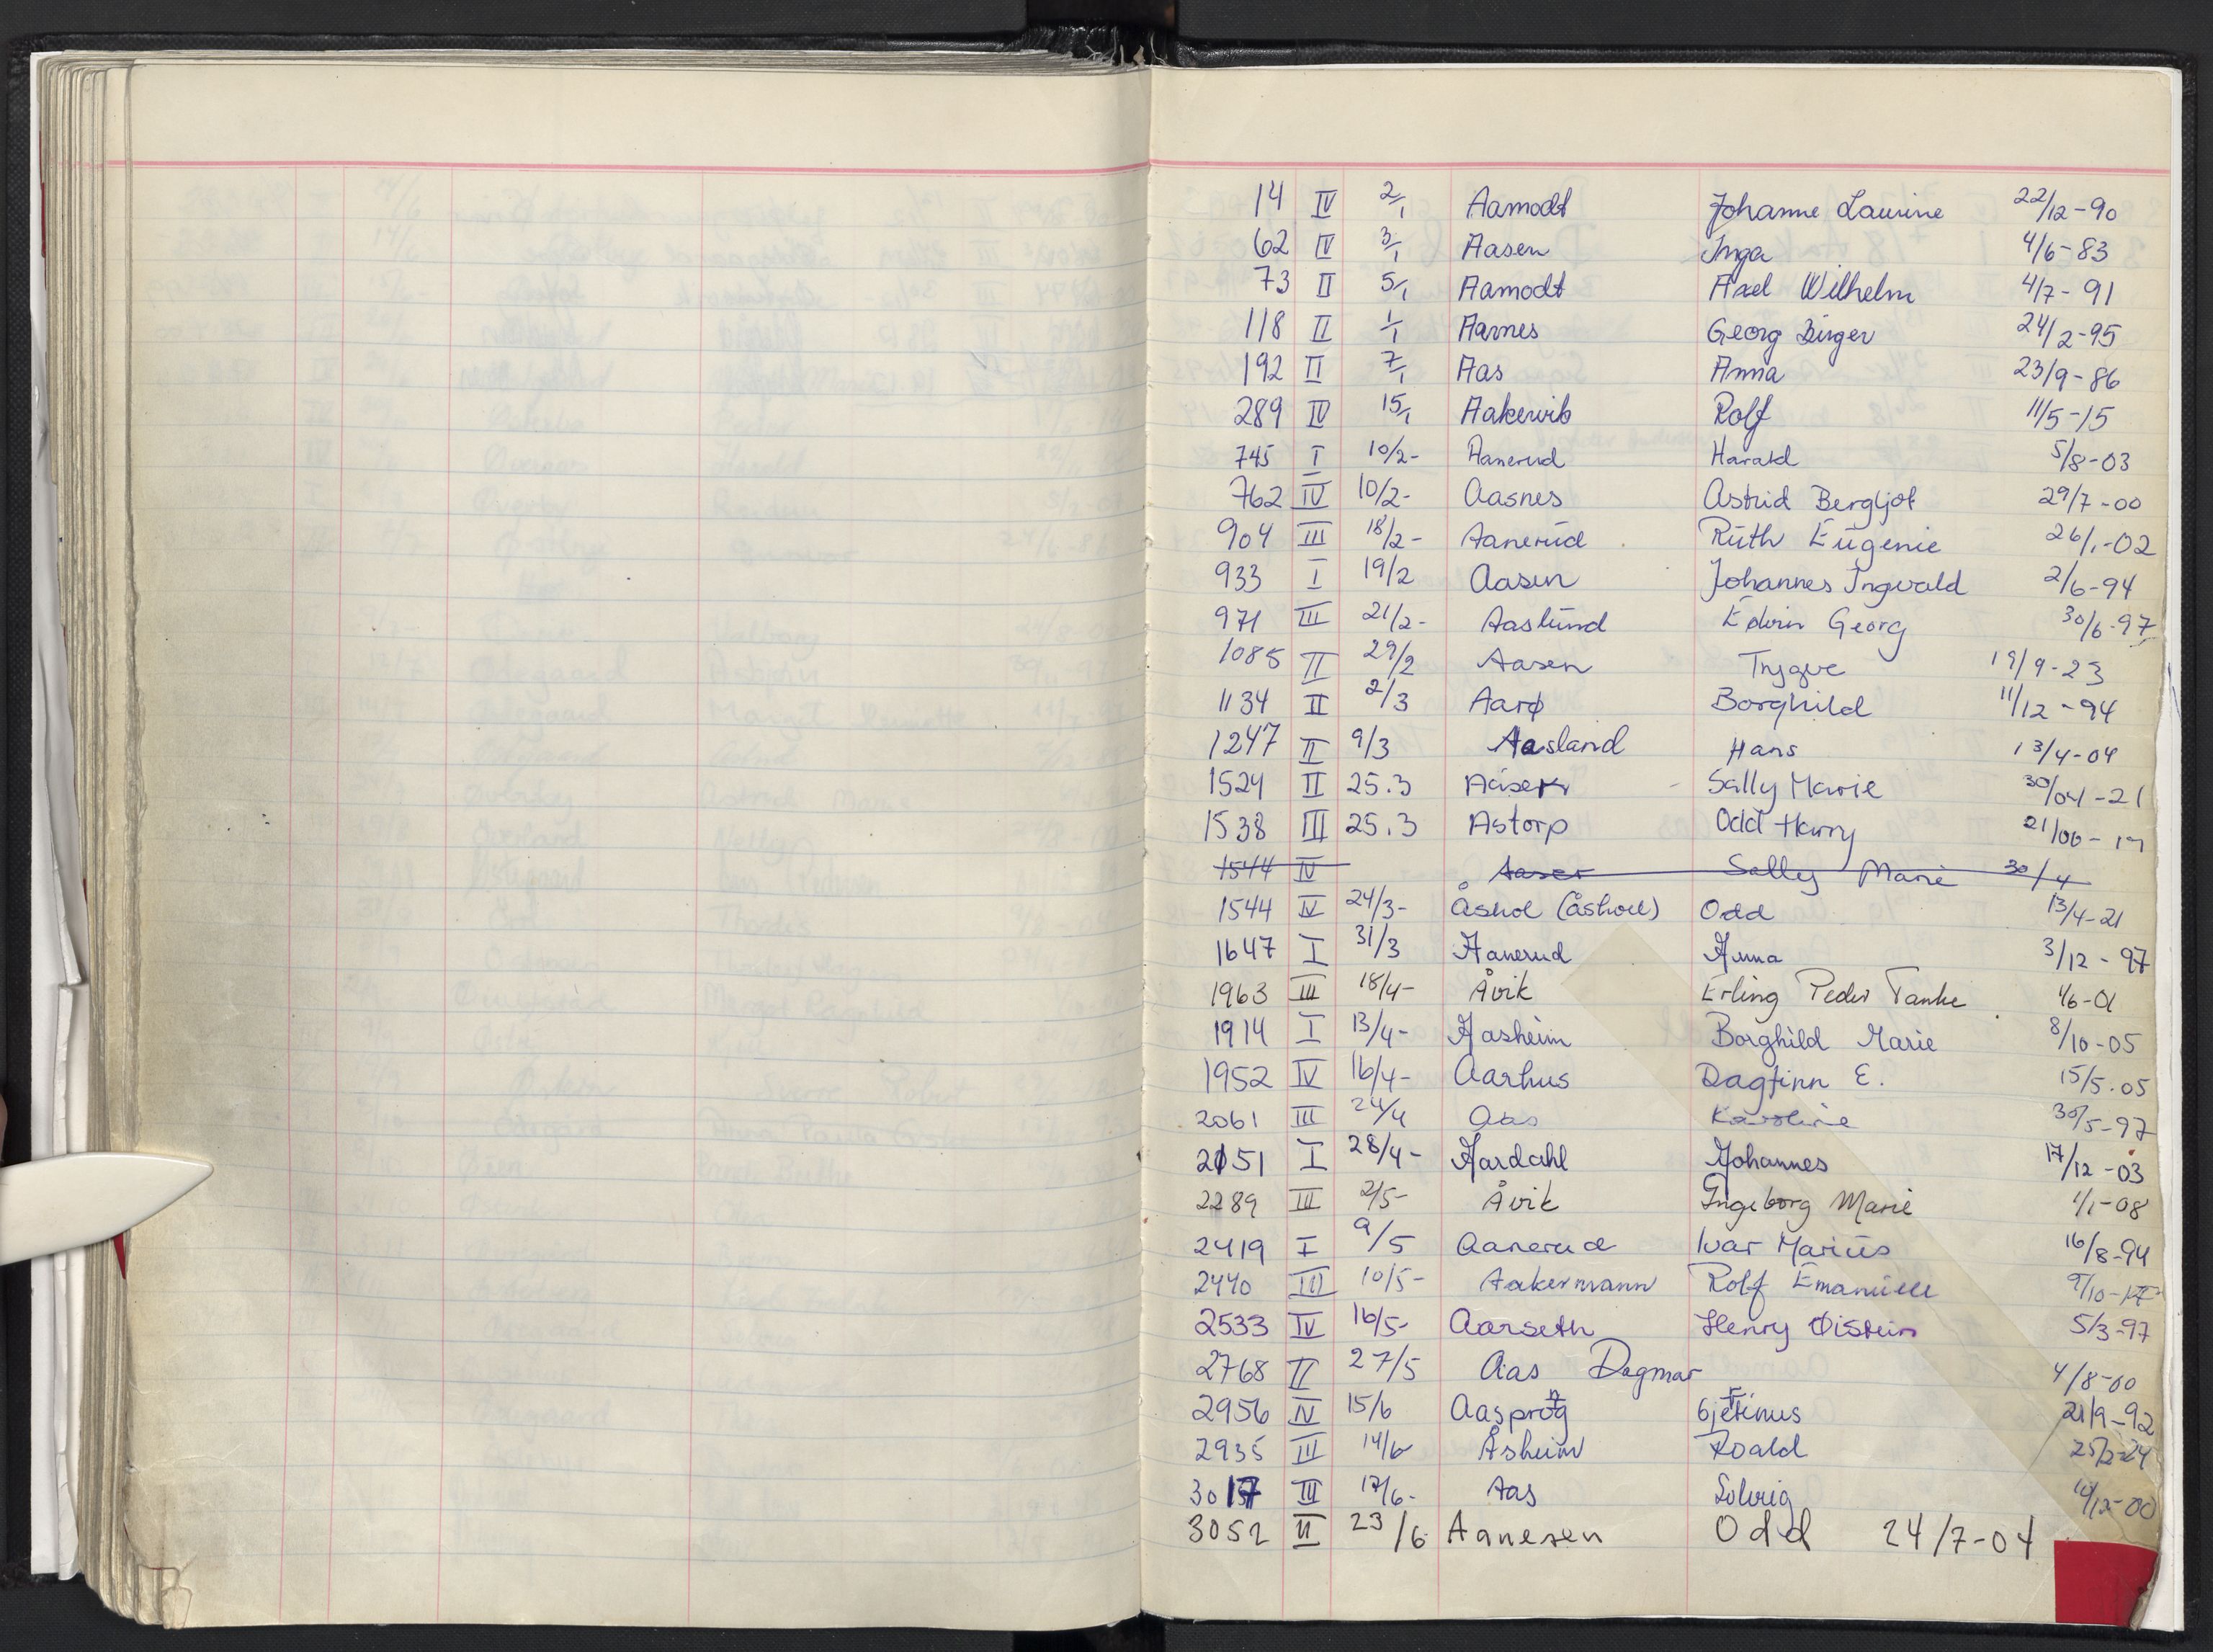 14 IV 2/1 Aamodt Johanne Laurine 22/12-90
62 IV 3/1 Aasen Inga 4/6-83
73 II 5/1 Aamodt Axel Wilhelm 4/7-91
118 II 1/1 Aarnes Georg Birger 24/2-95
192 II 7/1 Aas Anna 23/9-86
289 IV 15/1 Aakervik Rolf 11/5-15
745 I 10/2- Aanerud Harald 5/8-03
762 IV 10/2- Aasnes Astrid Bergljot 29/7-00
904 III 18/2- Aanerud Ruth Eugenie 26/1-02
933 I 19/2 Aasen Johannes Ingvald 2/6-94
971 III 21/2- Aaslund Edvin Georg 30/6-97
1085 II 29/2 Aasen Trygve 19/9-23
1134 II 2/3 Aarø Borghild 11/12-94
1247 II 9/3 Aasland Hans 13/4-04
1524 II 25.3 Aaser Sally Marie 30/04-21
1538 III 25.3 Astorp Odd Harry 21/06-
1544 IV Aaser Sally Marie 30/4
1544 IV 24/3- Åshol (Åsholl) Odd 13/4-21
1647 I 31/3 Aanerud Anna 3/12-97
1963 III 18/4- Åvik Erling Peder Tanke /6-01
1914 I 13/4- Aasheim Borghild Marie 8/10-05
1952 IV 16/4- Aarhus Dagfinn E. 15/5.05
2061 III 24/4 Aas Karoline 30/5-97
2151 I 28/4- Aardahl Johannes 17/12-03
2289 III 2/5- Åvik Ingeborg Marie 1/1-08
2419 I 9/5 Aanerud Ivar Marius 16/8-94
2440 III 10/5- Aakermann Rolf Emanuell 9/10-
2533 IV 16/5- Aarseth Henry Øistein 5/3-97
2768 II 27/5 Aas Dagmar 4/8-00
2956 IV 15/6 21/9-92
2935 III 14/6 Åsheim Roald 25/2-24
3017 III 17/6- Aas Solveig /12-00
3052 II 23/6 Aanesen Odd 24/7-04